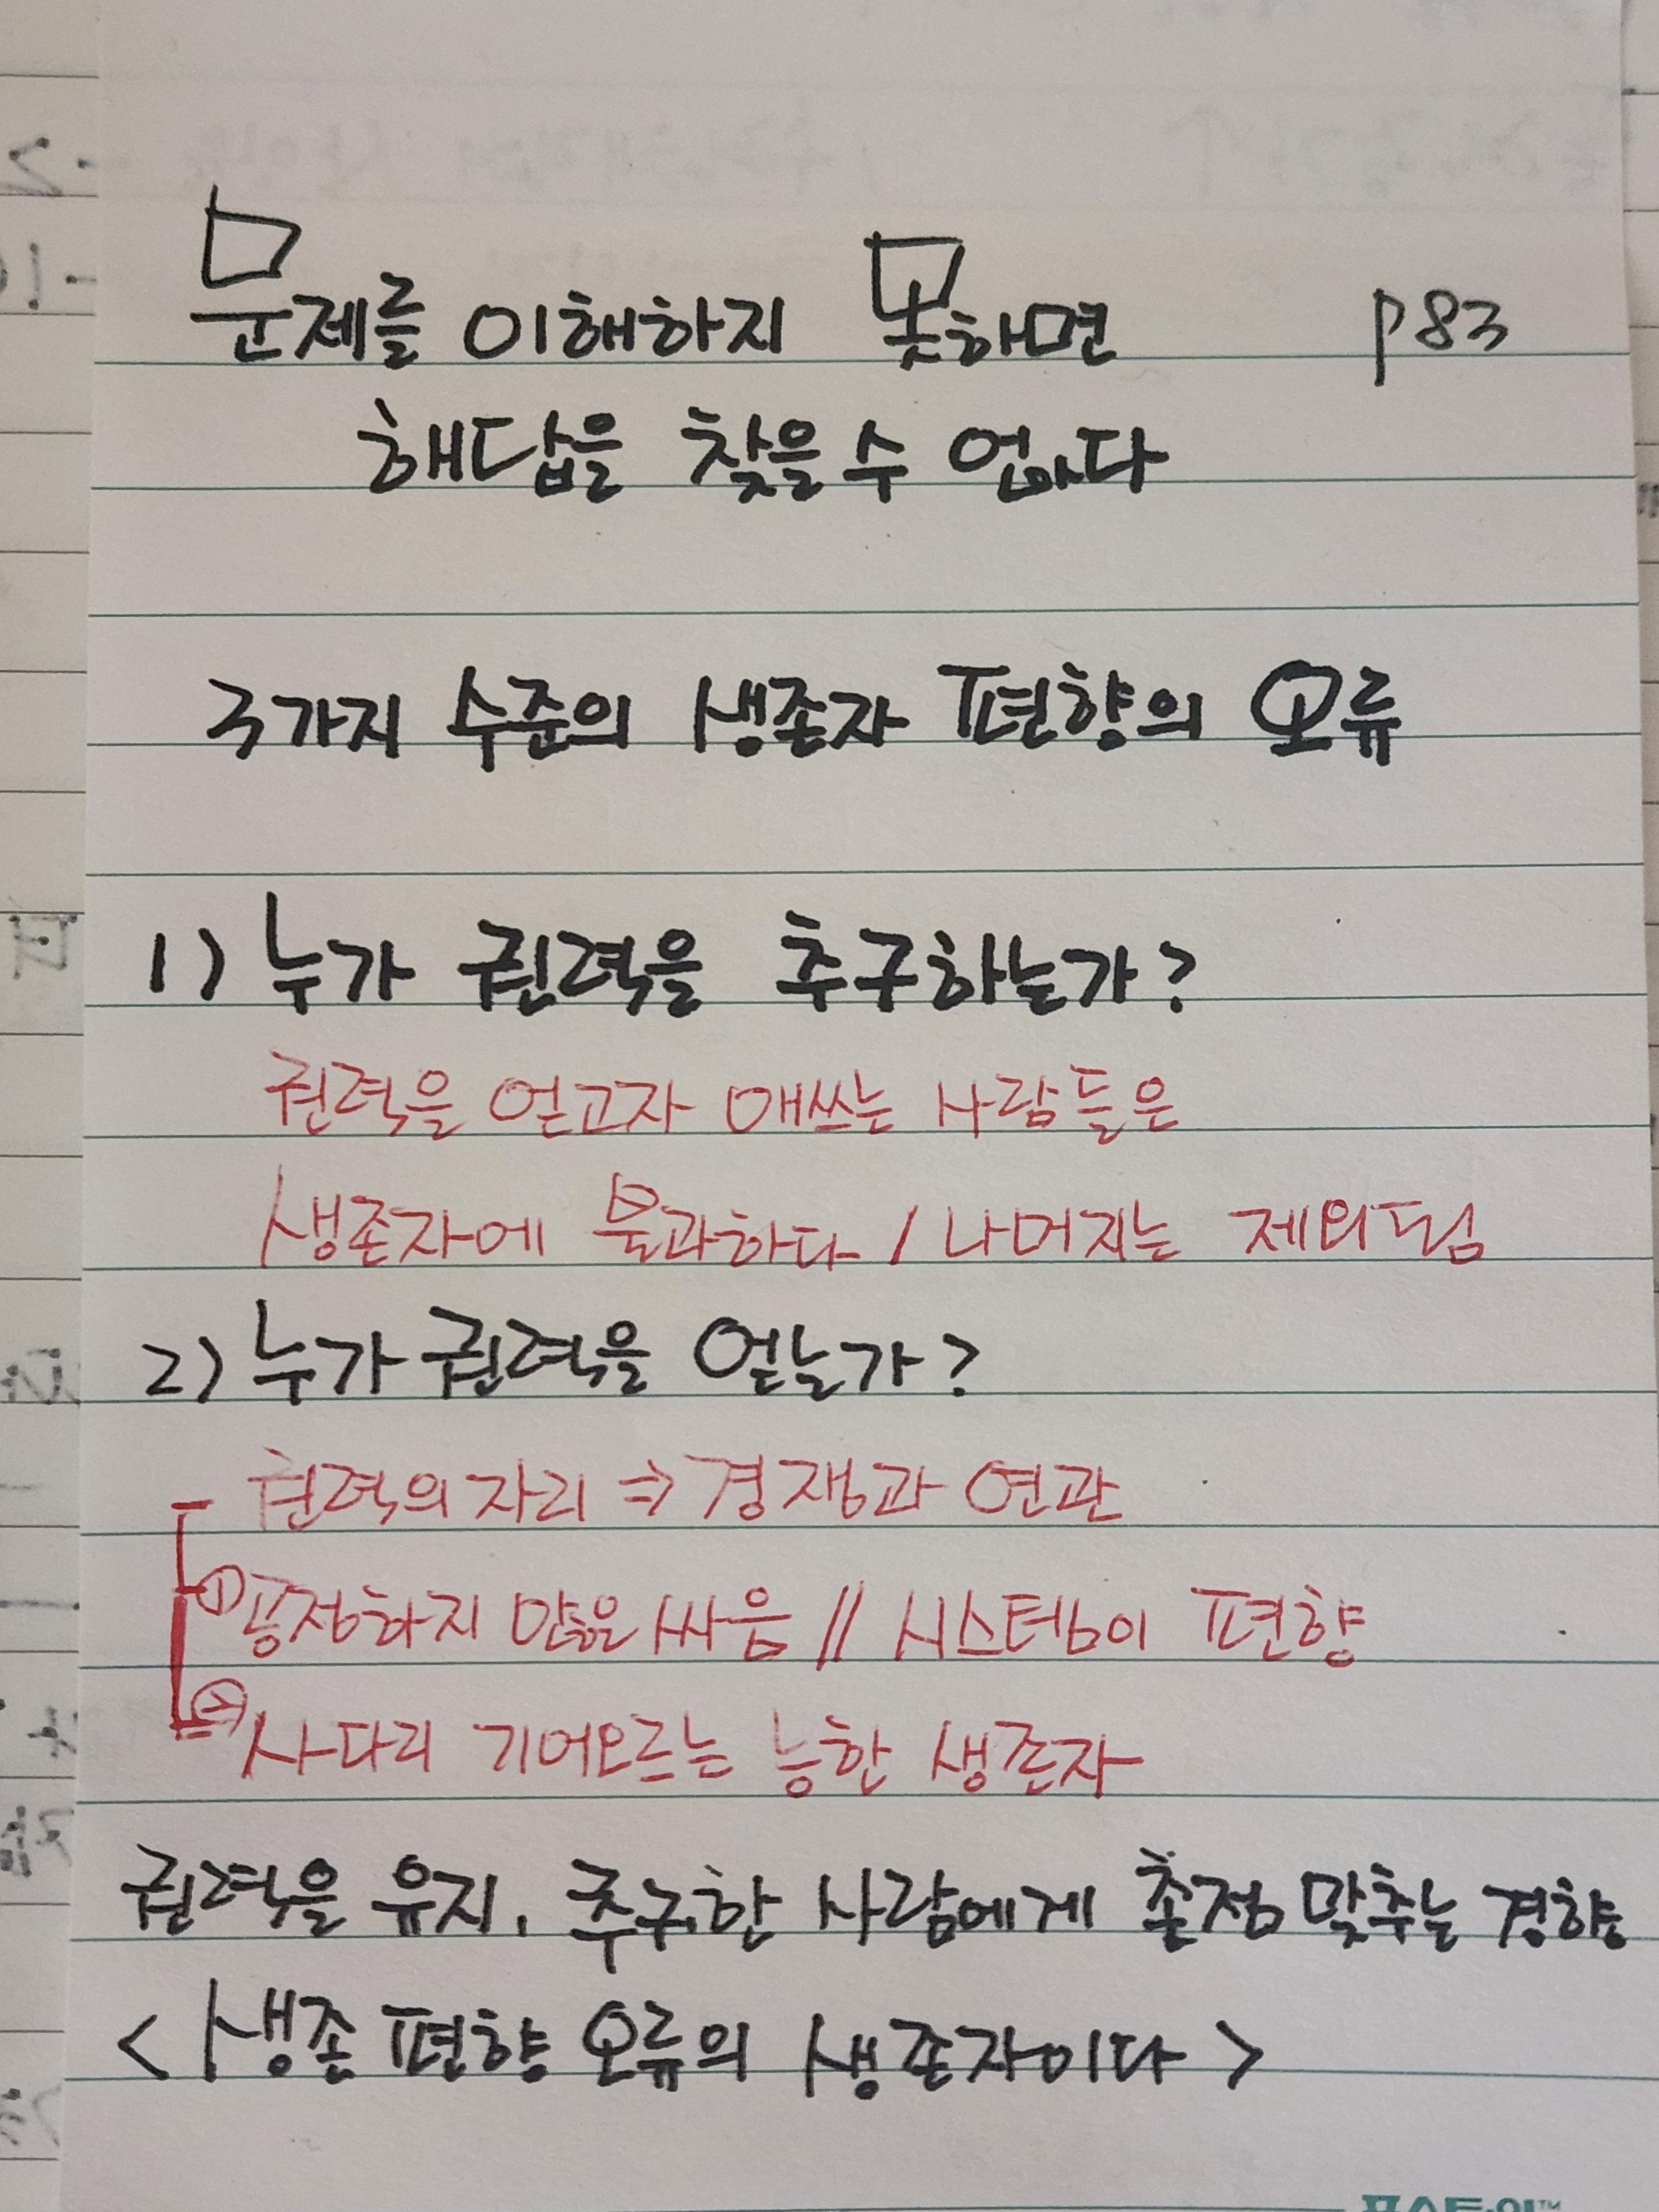 문제를 이해하지 못하면 p83
해답을 찾을 수 없다
3가지 수준의 생존자 편향의 오류
1) 누가 권력을 추구하는가?
권력을 얻고자 애쓰는 사람들은
생존자에 불과하다 / 나머지는 제외됨
2) 누가 권력을 얻는가?
권력의 자리 ⇒ 경쟁과 연관
① 공정하지 않은 싸움 // 시스템이 편향
사다리 기어오르는 능한 생존자
권력을 유지, 추구한 사람에게 촛점 맞추는 경향
< 생존 편향 오류의 생존자이다 >